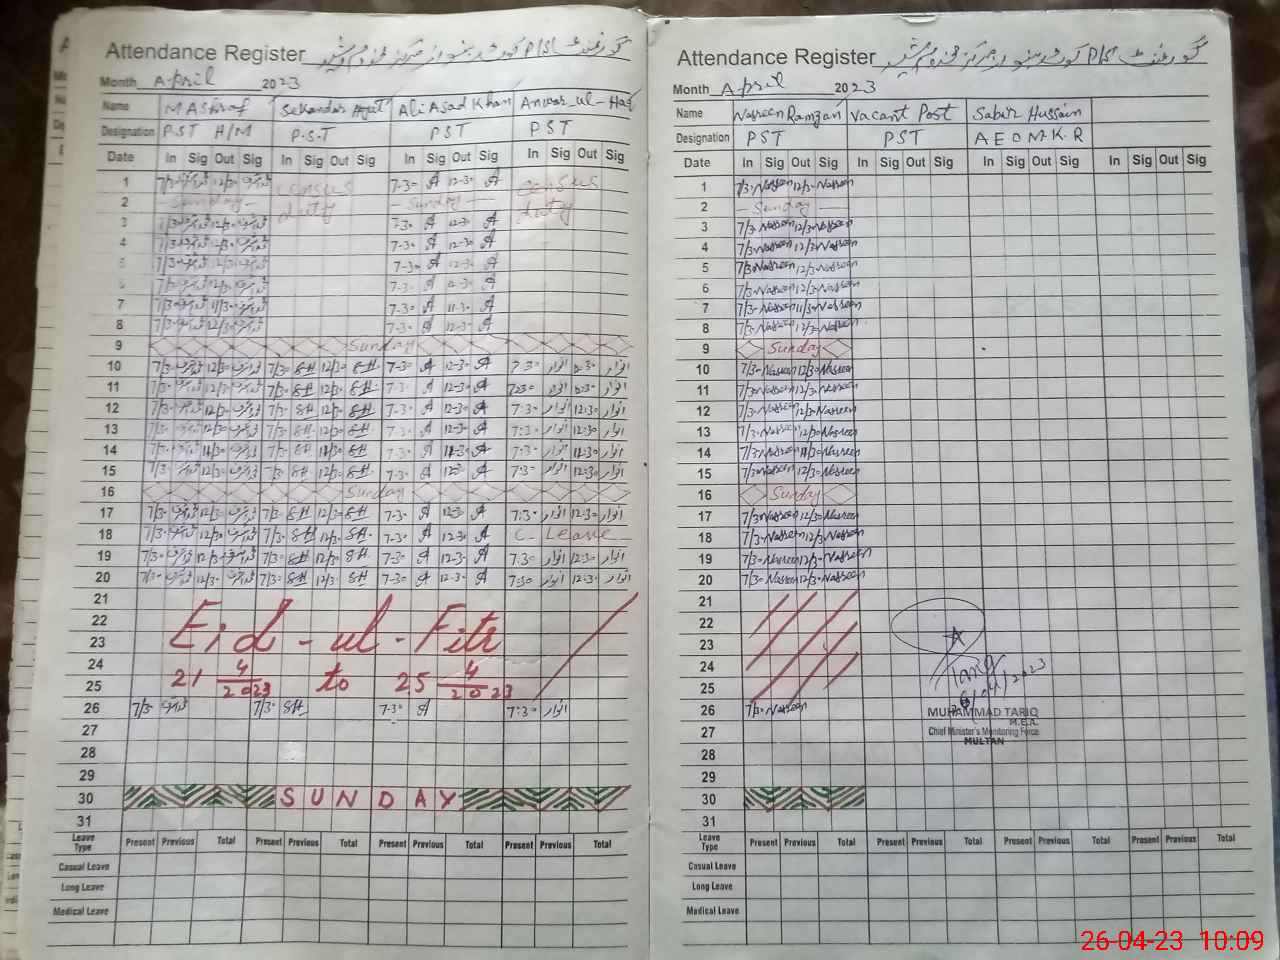 Attendance Register
Month April 2023
Name M Ashraf Sekandar Hyat Ali Asad Khan Anwar-ul-Haq
Designation PST H/M P.S.T PST PST
Date In Sig Out Sig In Sig Out Sig In Sig Out Sig In Sig Out Sig
1 7/3· 12/3· census 7-30 A 12-30 A census
2 - Sunday - duty - Sunday - duty
3 7/3· 12/3· 7-30 A 12-30 A
4 7/3· 12/3· 7-30 A 12-30 A
5 7/3· 12/3· 7-30 A 12-30 A
6 7/3· 12/3· 7-30 A 12-30 A
7 7/3· 11/3· 7-30 A 11-30 A
8 7/3· 12/3· 7-30 A 12-30 A
9 Sunday
10 7/30 12/30 7/30 SH 12/30 SH 7-30 A 12-30 A 7:30 انوار 12:30 انوار
11 7/30 12/30 7/30 SH 12/30 SH 7-30 A 12-30 A 7:30 انوار 12:30 انوار
12 7/3· 12/3· 7/3· SH 12/3· SH 7-30 A 12-30 A 7:30 انوار 12:30 انوار
13 7/3· 12/30 7/3· SH 12/30 SH 7-30 A 12-30 A 7:30 انوار 12:30 انوار
14 7/3· 11/30 7/3· SH 11/30 SH 7-30 A 11-30 A 7:30 انوار 11:30 انوار
15 7/3· 12/3· 7/3· SH 12/3· SH 7-30 A 12-30 A 7:30 انوار 12:30 انوار
16 Sunday
17 7/3· 12/3· 7/3· SH 12/3· SH 7-30 A 12-30 A 7:30 انوار 12:30 انوار
18 7/3· 12/3· 7/3· SH 12/3· SH 7-30 A 12-30 A C- Leave
19 7/3· 12/3· 7/3· SH 12/3· SH 7-30 A 12-30 A 7:30 انوار 12:30 انوار
20 7/3· 12/3· 7/3· SH 12/3· SH 7-30 A 12-30 A 7:30 انوار 12:30 انوار
21
22 Eid-ul-Fitr
23
24 21 4/2023 to 25 4/2023
25
26 7/3· 7/3· SH 7-30 A 7:30 انوار
27
28
29
30 SUNDAY
31
Leave Type Present Previous Total Present Previous Total Present Previous Total Present Previous Total
Casual Leave
Long Leave
Medical Leave
Attendance Register
Month April 2023
Name Nasreen Ramzan Vacant Post Sabir Hussain
Designation PST PST AEO M.K.R
Date In Sig Out Sig In Sig Out Sig In Sig Out Sig In Sig Out Sig
1 7/3· Nasreen 12/3· Nasreen
2 - Sunday -
3 7/3· Nasreen 12/3· Nasreen
4 7/3· Nasreen 12/3· Nasreen
5 7/3· Nasreen 12/3· Nasreen
6 7/3· Nasreen 12/3· Nasreen
7 7/3· Nasreen 11/3· Nasreen
8 7/3· Nasreen 12/3· Nasreen
9 Sunday
10 7/3· Nasreen 12/3· Nasreen
11 7/3· Nasreen 12/3· Nasreen
12 7/3· Nasreen 12/3· Nasreen
13 7/3· Nasreen 12/30 Nasreen
14 7/3· Nasreen 11/3· Nasreen
15 7/3· Nasreen 12/3· Nasreen
16 Sunday
17 7/3· Nasreen 12/3· Nasreen
18 7/3· Nasreen 12/3· Nasreen
19 7/3· Nasreen 12/3· Nasreen
20 7/3· Nasreen 12/3· Nasreen
21
22
23
24
25 Tariq
26 7/3· Nasreen 26/04/2023
MUHAMMAD TARIQ
M.E.A.
27 Chief Minister's Monitoring Force
MULTAN
28
29
30
31
Leave Type Present Previous Total Present Previous Total Present Previous Total Present Previous Total
Casual Leave
Long Leave
Medical Leave
26-04-23 10:09